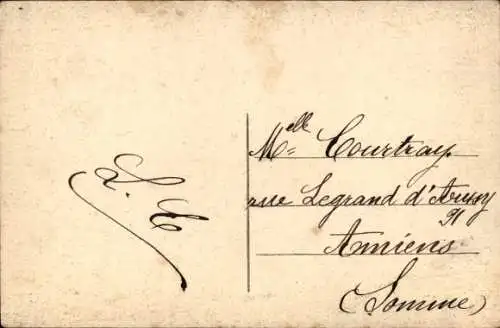 L. C
Melle Courtray
rue Legrand d'Aussy
Amiens
(Somme)